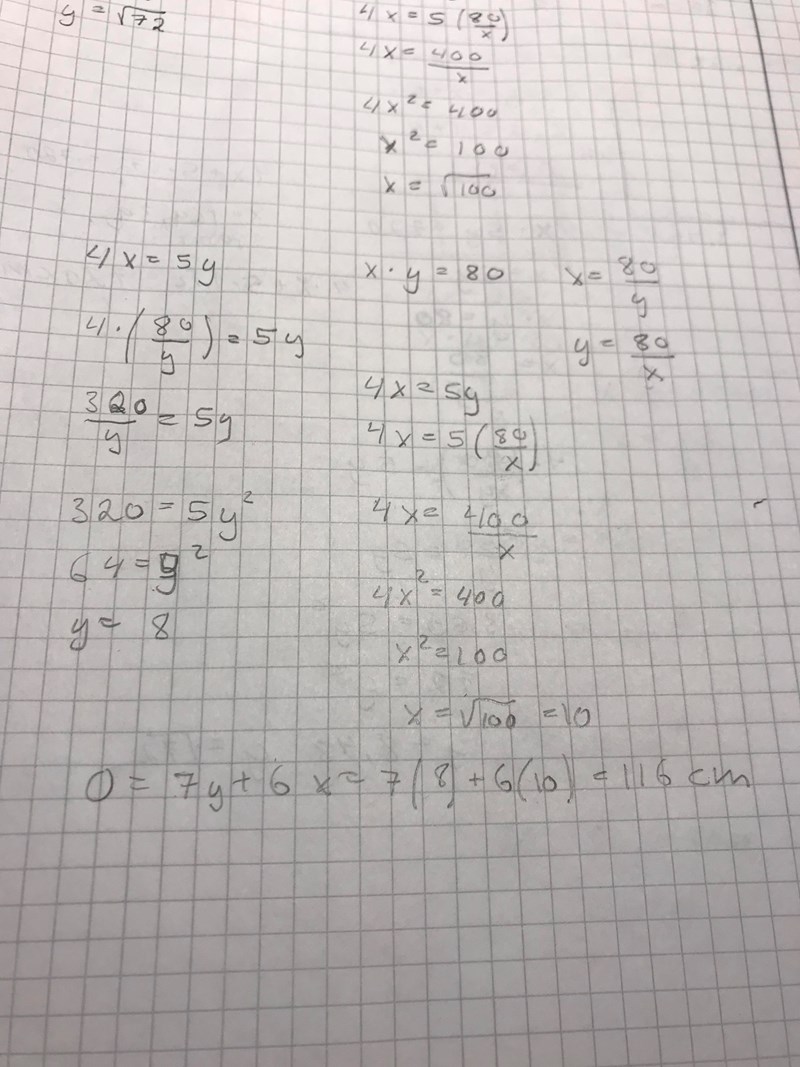 y = √72
4x = 5(80/x)
4x = 400/x
4x² = 400
x² = 100
x = √100
4x = 5y
4·(80/y) = 5y
320/y = 5y
320 = 5y²
64 = y²
y = 8
x · y = 80
x = 80/y
y = 80/x
4x = 5y
4x = 5(80/x)
4x = 400/x
4x² = 400
x² = 100
x = √100 = 10
O = 7y + 6x = 7(8) + 6(10) = 116 cm